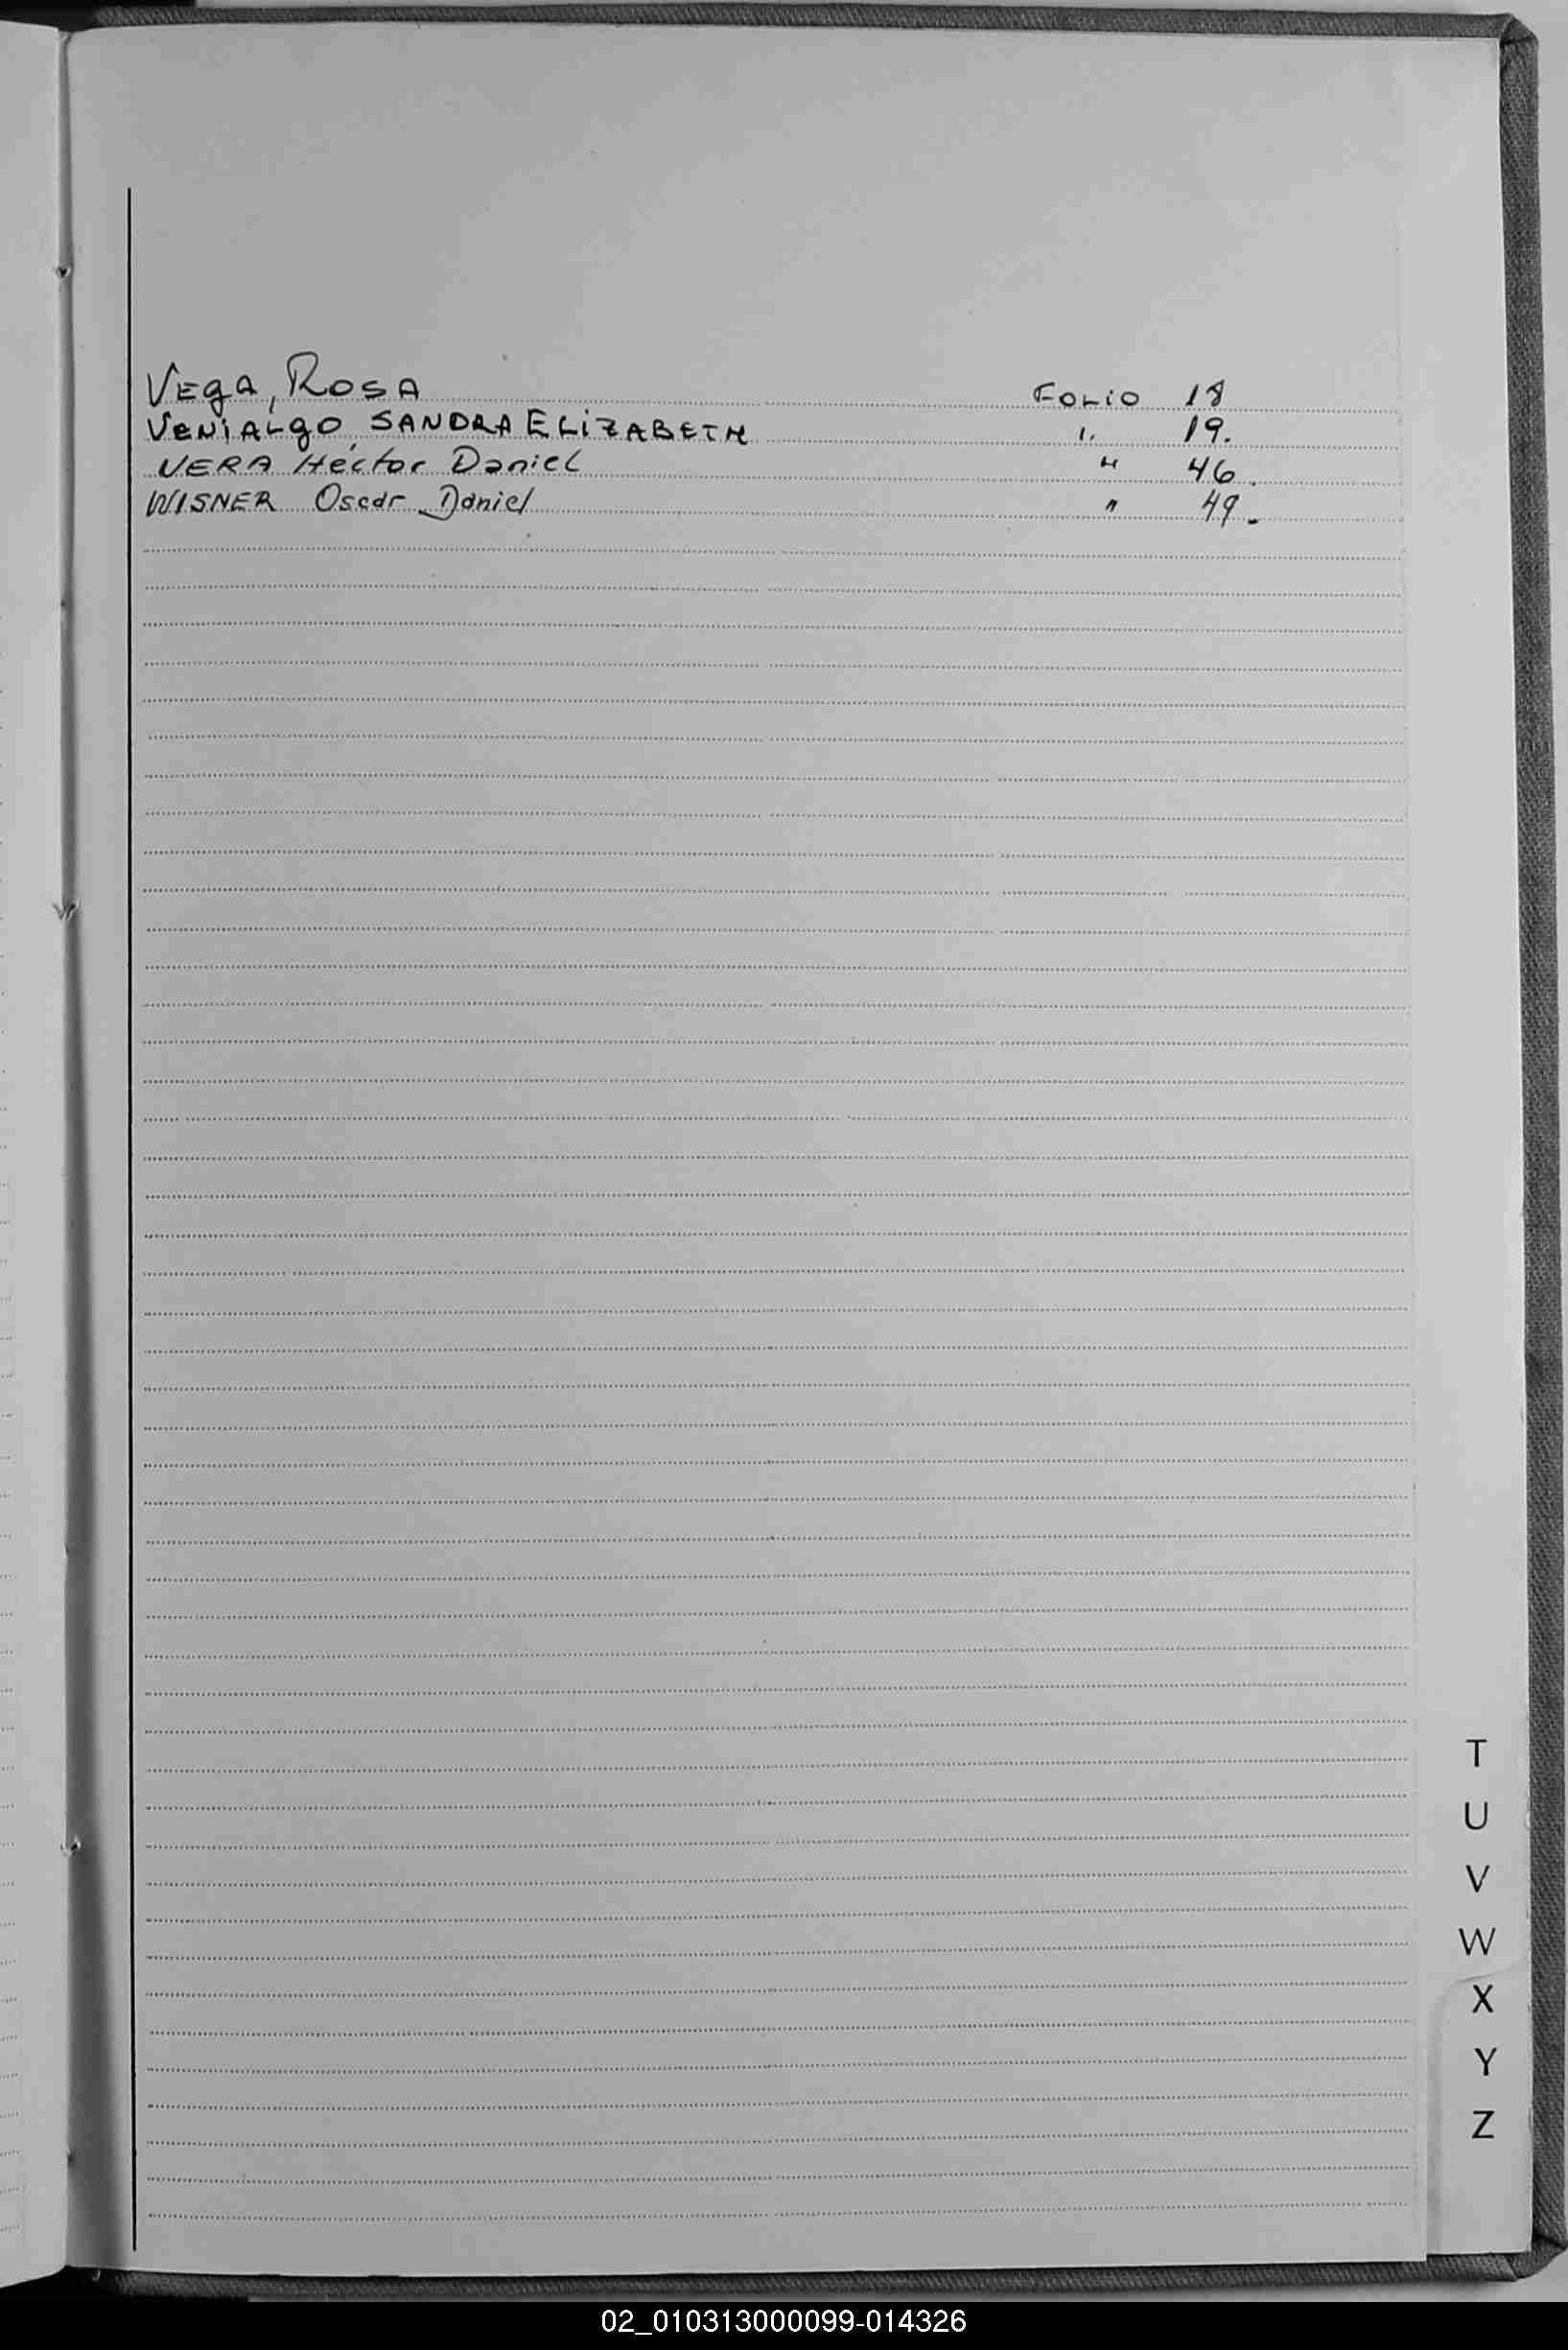 Vega, Rosa Folio 18
Venialgo, SANDRA ELiZABETH " 19.
VERA Héctor Daniel " 46.
WISNER Oscar Daniel " 49.-
T
U
V
W
X
Y
Z
02_010313000099-014326